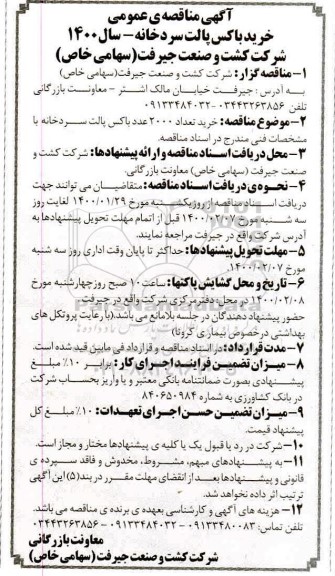 آگهی مناقصه ی عمومی
خرید باکس پالت سردخانه - سال ۱۴۰۰
شرکت کشت و صنعت جیرفت (سهامی خاص)
۱- مناقصه گزار: شرکت کشت و صنعت جیرفت (سهامی خاص)
به آدرس: جیرفت خیابان مالک اشتر - معاونت بازرگانی
تلفن ۰۳۴۴۳۲۶۳۸۵۶ - ۰۹۱۳۳۴۸۴۰۳۲
۲- موضوع مناقصه: خرید تعداد ۲۰۰۰ عدد باکس پالت سردخانه با
مشخصات فنی مندرج در اسناد مناقصه.
۳- محل دریافت اسناد مناقصه و ارائه پیشنهادها: شرکت کشت و
صنعت جیرفت (سهامی خاص) معاونت بازرگانی.
۴- نحوه ی دریافت اسناد مناقصه: متقاضیان می توانند جهت
دریافت اسناد مناقصه از روز یکشنبه مورخ ۱۴۰۰/۰۱/۲۹ لغایت روز
سه شنبه مورخ ۱۴۰۰/۰۲/۰۷ قبل از اتمام مهلت تحویل پیشنهادها به
آدرس شرکت واقع در جیرفت مراجعه نمایند.
۵- مهلت تحویل پیشنهادها: حداکثر تا پایان وقت اداری روز سه شنبه
مورخ ۱۴۰۰/۰۲/۰۷.
۶- تاریخ و محل گشایش پاکتها: ساعت ۱۰ صبح روز چهارشنبه مورخ
۱۴۰۰/۰۲/۰۸ در محل دفتر مرکزی شرکت واقع در جیرفت
حضور پیشنهاد دهندگان در جلسه بلامانع می باشد. (با رعایت پروتکل های
بهداشتی در خصوص بیماری کرونا)
۷- مدت قرارداد: در اسناد مناقصه و قرارداد فی مابین قید شده است.
۸- میزان تضمین فرایند اجرای کار: برابر ۱۰٪ مبلغ
پیشنهادی بصورت ضمانتنامه بانکی معتبر و یا واریز بحساب شرکت
در بانک کشاورزی به شماره ۸۴۰۶۵۰۹۸۴
۹- میزان تضمین حسن اجرای تعهدات: ۱۰٪ مبلغ کل
پیشنهاد قیمت.
۱۰- شرکت در رد یا قبول یک یا کلیه ی پیشنهادها مختار و مجاز است.
۱۱- به پیشنهادهای مبهم، مشروط، مخدوش و فاقد سپرده ی
قانونی و پیشنهادها بعد از انقضای مهلت مقرر در بند (۵) این آگهی
ترتیب اثر داده نخواهد شد.
۱۲- هزینه های آگهی و کارشناسی بعهده ی برنده ی مناقصه می باشد.
تلفن تماس: ۰۹۱۳۳۴۸۰۰۸۳ - ۰۹۱۳۳۴۸۴۰۳۲ - ۰۳۴۴۳۲۶۳۸۵۶
معاونت بازرگانی
شرکت کشت و صنعت جیرفت (سهامی خاص)